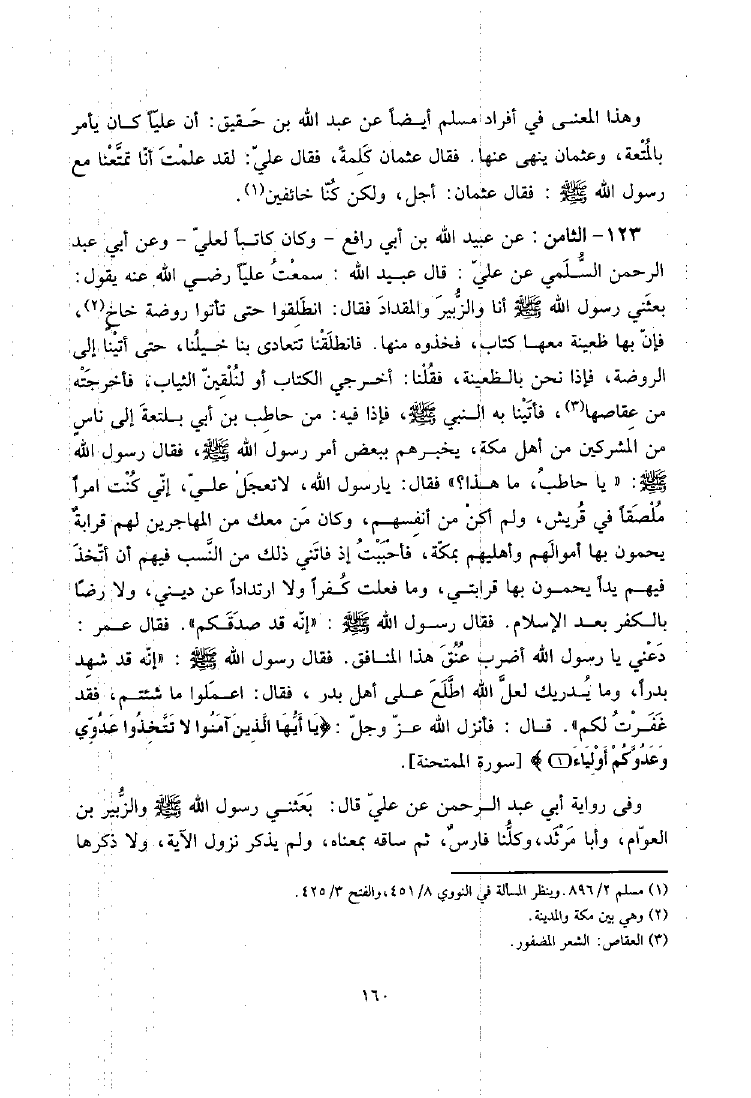 وهذا المعنى في أفراد مسلم أيضاً عن عبد الله بن حَقيق: أن عليّاً كان يأمر
بالمُتْعة، وعثمان ينهى عنها. فقال عثمان كَلِمةً، فقال عليّ: لقد علمْتَ أنّا تمتَّعْنا مع
رسول الله ﷺ : فقال عثمان: أجل، ولكن كُنّا خائفين(١).
١٢٣- الثامن: عن عبيد الله بن أبي رافع - وكان كاتباً لعليّ - وعن أبي عبد
الرحمن السُّلَمي عن عليّ : قال عبيد الله : سمعْتُ عليّاً رضي الله عنه يقول:
بعثَني رسول الله ﷺ أنا والزُّبيرَ والمقدادَ فقال: انطلِقوا حتى تأتوا روضة خاخٍ(٢)،
فإنّ بها ظعينة معها كتاب، فخذوه منها. فانطلَقْنا تتعادى بنا خيلُنا، حتى أتيْنا إلى
الروضة، فإذا نحن بالظعينة، فقُلْنا: أخرجي الكتاب أو لنُلْقِينّ الثياب، فأخرجَتْه
من عِقاصها(٣)، فأتَيْنا به النبي ﷺ، فإذا فيه: من حاطِب بن أبي بلتعةَ إلى ناسٍ
من المشركين من أهل مكة، يخبرهم ببعض أمر رسول الله ﷺ، فقال رسول الله
ﷺ: « يا حاطبُ، ما هذا؟» فقال: يارسول الله، لاتعجَلْ عليّ، إنّي كُنْت امرأً
مُلْصَقاً في قُريش، ولم أكنْ من أنفسهم، وكان مَن معك من المهاجرين لهم قرابةٌ
يحمون بها أموالَهم وأهليهم بمكّة، فأحْبَبْتُ إذ فاتَني ذلك من النَّسب فيهم أن أتّخذَ
فيهم يداً يحمون بها قرابتي، وما فعلت كُفراً ولا ارتداداً عن ديني، ولا رضًا
بالكفر بعد الإسلام. فقال رسول الله ﷺ : «إنّه قد صدقَكم». فقال عمر :
دَعْني يا رسول الله أضرب عُنُقَ هذا المنافق. فقال رسول الله ﷺ : «إنّه قد شهِد
بدراً، وما يُدريك لعلَّ الله اطَّلَعَ على أهل بدر ، فقال: اعملوا ما شئتم، فقد
غفَرْتُ لكم». قال : فأنزل الله عزّ وجلّ : ﴿يَا أَيُّهَا الَّذِينَ آمَنُوا لا تَتَّخِذُوا عَدُوِّي
وَعَدُوَّكُمْ أَوْلِيَاءَ (١) ﴾ [سورة الممتحنة].
وفى رواية أبي عبد الرحمن عن عليّ قال: بَعَثني رسول الله ﷺ والزُّبير بن
العوّام، وأبا مَرْثَد، وكلُّنا فارسٌ، ثم ساقه بمعناه، ولم يذكر نزول الآية، ولا ذكرها
(١) مسلم ٨٩٦/٢. وينظر المسألة في النووي ٤٥١/٨، والفتح ٤٢٥/٣.
(٢) وهي بين مكة والمدينة.
(٣) العقاص: الشعر المضفور.
١٦٠